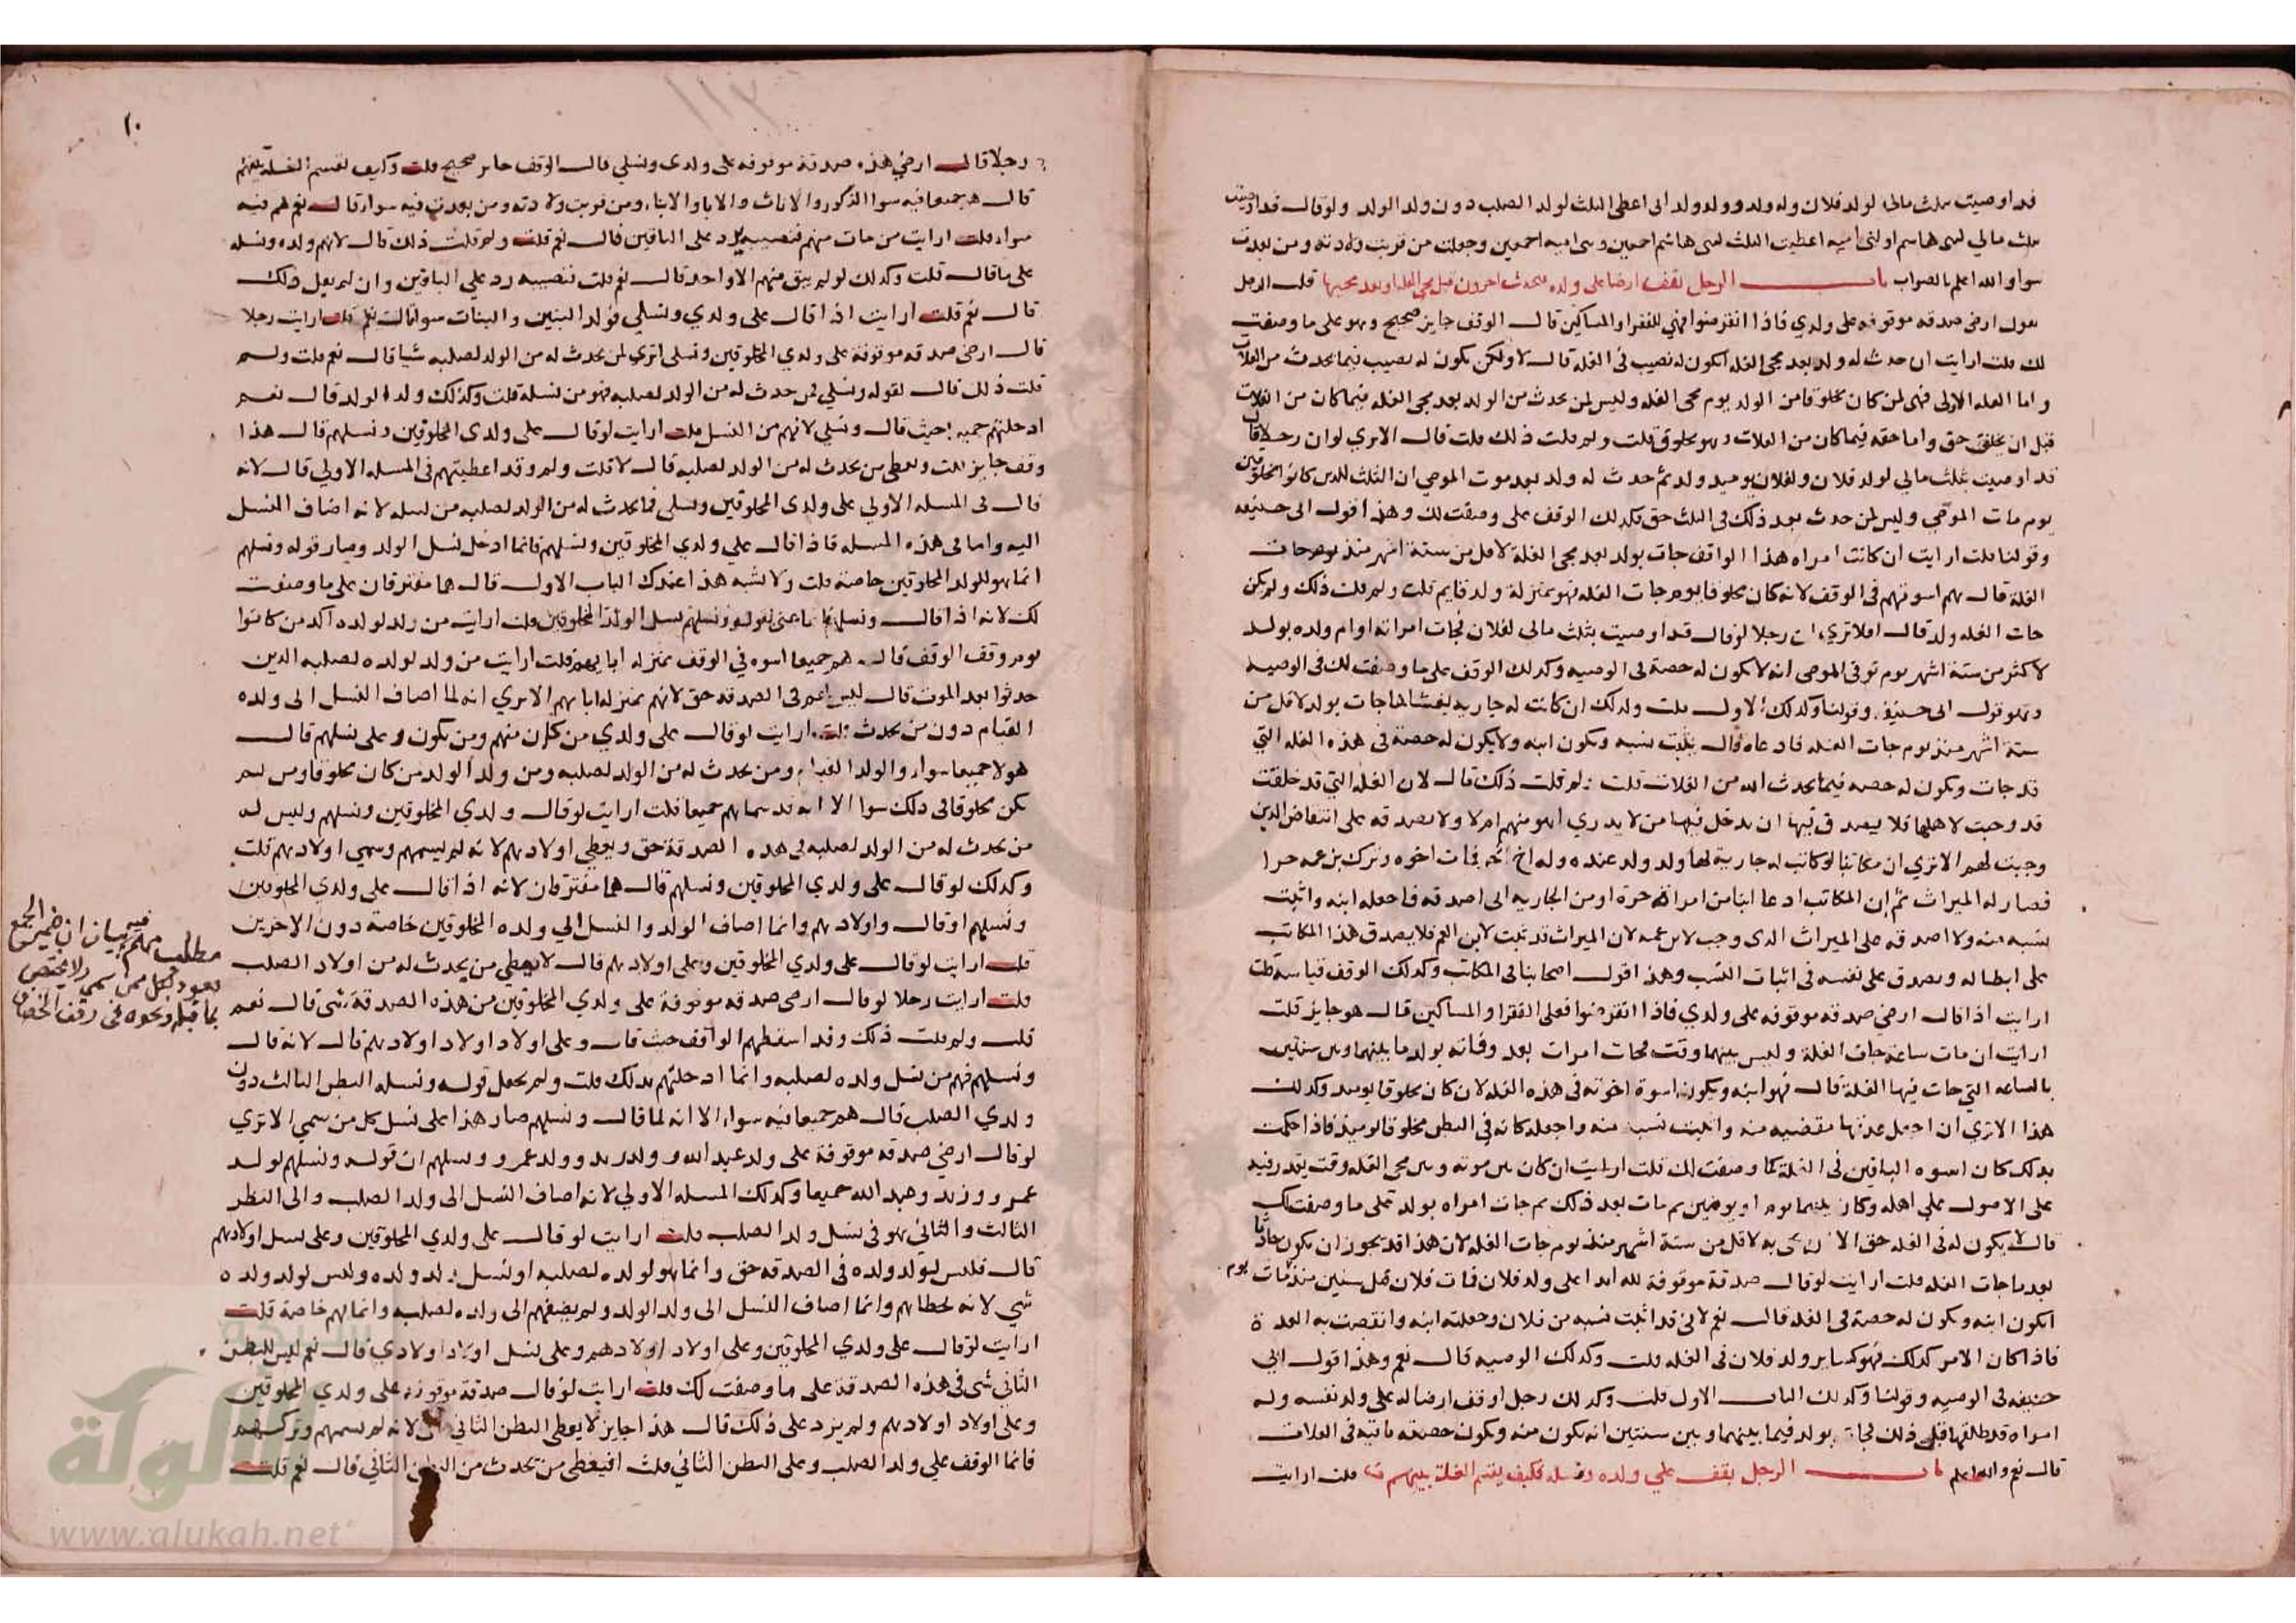 قد اوصيت بثلث مالي لولد فلان وله ولد وولد ولد اني اعطي الثلث لولد الصلب دون ولد الولد ولو قال قد اوصيت
بثلث مالي لبني هاشم او لبني اميه اعطيت الثلث لبني هاشم اجمعين وبني اميه اجمعين وجعلت من قربت ولادته ومن بعدت
سوا والله اعلم بالصواب باب الرجل يقف ارضا على ولده فيحدث اخرون قبل مجي الغله او بعد مجيها قلت الرجل
يقول ارضي صدقه موقوفه على ولدي فاذا انقرضوا فهي للفقرا والمساكين قال الوقف جايز صحيح وهو على ما وصفت
لك قلت ارايت ان حدث له ولد بعد مجي الغله ايكون له نصيب في الغله قال لا ولكن يكون له نصيب فيما يحدث من الغلات
و اما الغله الاولى فهي لمن كان مخلوقا من الولد يوم مجي الغله وليس لمن يحدث من الولد بعد مجي الغله فيما كان من الغلات
قبل ان يخلق حق واما حقه فيما كان من الغلات وهو مخلوق قلت ولم قلت ذلك قلت قال الا تري لو ان رجلا قال
قد اوصيت بثلث مالي لولد فلان ولفلان يوميد ولد ثم حدث له ولد بعد موت الموصي ان الثلث للذين كانوا مخلوقين
يوم مات الموصي وليس لمن حدث بعد ذلك في الثلث حق فكذلك الوقف على ما وصفت لك وهذا قول ابي حنيفه
وقولنا قلت ارايت ان كانت امراه هذا الواقف جات بولد بعد مجي الغلة لاقل من ستة اشهر منذ يوم جات
الغلة قال هم اسوتهم في الوقف لانه كان مخلوقا يوم جات الغله فهو بمنزلة ولد قايم قلت ولم قلت ذلك ولم يكن
جات الغله ولد قال افلا تري ان رجلا لو قال قد اوصيت بثلث مالي لفلان فجات امراته او ام ولده بولد
لاكثر من ستة اشهر يوم توفي الموصي انه لا يكون له حصة في الوصيه وكذلك الوقف على ما وصفت لك في الوصيه
وهو قول ابي حنيفه وقولنا وكذلك الاول قلت وكذلك ان كانت له جاريه يغشاها جات بولد لاقل من
ستة اشهر منذ يوم جات الغله فادعاه قال يثبت نسبه ويكون ابنه ولا يكون له حصة في هذه الغله التي
قد جات ويكون له حصه فيما يحدث الله من الغلات قلت ولم قلت ذلك قال لان الغله التي قد خلقت
قد وجبت لاهلها فلا يصدق فيها ان يدخل فيها من لا يدري اهو منهم ام لا ولا يصدقه على انتقاض الذين
وجبت لهم الا تري ان مكاتبا لو كانت له جارية لها ولد ولد عنده وله اخ حر فمات اخوه وترك ابن عمه حرا
فصار له الميراث ثم ان المكاتب ادعا ابنا من امراة حرة او من الجاريه اني اصدقه فاجعله ابنه واثبت
نسبه منه ولا اصدقه على الميراث الذي وجب لابن عمه لان الميراث قد ثبت لابن العم فلا يصدق هذا المكاتب
على ابطاله ويصدق على نفسه في اثبات النسب وهذا قول اصحابنا في المكاتب وكذلك الوقف قياسه قلت
ارايت اذا قال ارضي صدقه موقوفه على ولدي فاذا انقرضوا فعلى الفقرا والمساكين قال هو جايز قلت
ارايت ان مات ساعة جات الغلة وليس بينهما وقت فجات امرات بعد وفاته بولد ما بينهما وبين سنتين
بالساعه التي جات فيها الغلة قال فهو ابنه ويكون اسوة اخوته في هذه الغله لان كان مخلوقا يوميد وكذلك
هذا الا تري ان اجعل عدتها منقضيه منه واثبت نسبه منه واجعله كانه في البطن مخلوقا يوميذ فاذا حكمت
بذلك كان اسوه الباقين في الغلة كما وصفت لك قلت ارايت ان كان بين موته وبين مجي الغله وقت يقدر فيه
على الاصول على اهله وكان بينهما يوم او يومين ثم مات بعد ذلك ثم جات امراه بولد على ما وصفت لك
قال لا يكون له في الغله حق الا ان تجي به لاقل من ستة اشهر منذ يوم جات الغله لان هذا قد يجوز ان يكون حادثا
بعد ما جات الغله قلت ارايت لو قال صدقة موقوفة لله ابدا على ولد فلان فمات فلان قبل سنين منذ مات يوم
ايكون ابنه ويكون له حصة في الغله قال نعم لاني قد اثبت نسبه من فلان وجعلته ابنه وانقضت به العدة
فاذا كان الامر كذلك فهو كساير ولد فلان في الغله قلت وكذلك الوصيه قال نعم وهذا قول ابي
حنيفه في الوصيه وقولنا وكذلك الباب الاول قلت وكذلك رجل اوقف ارضا له على ولد نفسه وله
امراه قد طلقها قبل ذلك فجات بولد فيما بينهما وبين سنتين انه يكون منه ويكون حصته ثابته في الغلات
قال نعم والله اعلم باب الرجل يقف على ولده ونسله فكيف يقسم الغلة بينهم قلت ارايت
١٠
رجلا قال ارضي هذه صدقة موقوفه على ولدي ونسلي قال الوقف جايز صحيح قلت وكيف تقسم الغله بينهم
قال هم جميعا فيه سوا الذكور والاناث والابا والابناء ومن قربت ولادته ومن بعدت فيه سوا قال نعم هم فيه
سواء قلت ارايت من مات منهم فنصيبه يرد على الباقين قال نعم قلت ولم قلت ذلك قال لانهم ولده ونسله
على ما قال قلت وكذلك لو لم يبق منهم الا واحد قال نعم قلت فنصيبه رد علي الباقين وان لم يقل ذلك
قال نعم قلت ارايت اذا قال على ولدي ونسلي فولد البنين والبنات سوا قال نعم قلت ارايت رجلا
قال ارضي صدقه موقوفة على ولدي المخلوقين ونسلي اتري لمن يحدث له من الولد لصلبه شيا قال نعم قلت ولم
قلت ذلك قال لقوله ونسلي فمن حدث له من الولد لصلبه فهو من نسله قلت وكذلك ولد الولد قال نعم
ادخلتهم جميعا حيث قال ونسلي لانهم من النسل قلت ارايت لو قال على ولدي المخلوقين ونسلهم قال هذا
وقف جايز قلت ويعطى من يحدث له من الولد لصلبه قال لا قلت ولم وقد اعطيتهم في المسله الاولي قال لانه
قال في المسله الاولي على ولدي المخلوقين ونسلي فما يحدث له من الولد لصلبه من نسله لانه اضاف النسل
اليه واما في هذه المسله فاذا قال علي ولدي المخلوقين ونسلهم فانما ادخل نسل الولد وصار قوله ونسلهم
انما هو للولد المخلوقين خاصة قلت ولا يشبه هذا عندك الباب الاول قال هما مفترقان على ما وصفت
لك لانه اذا قال ونسلهم فانما عنى بقوله ونسلهم نسل الولد المخلوقين قلت ارايت من ولد لولده اكد من كانوا
يوم وقف الوقف قال هم جميعا اسوه في الوقف بمنزله ابايهم قلت ارايت من ولد لولده لصلبه الذين
حدثوا بعد الموت قال ليس لهم في الصدقه حق لانهم بمنزله اباهم الا تري انه لما اضاف النسل الى ولده
القيام دون من يحدث قلت ارايت لو قال على ولدي من كان منهم ومن يكون وعلى نسلهم قال
هولا جميعا سواء والولد القيام ومن يحدث له من الولد لصلبه ومن ولد الولد من كان مخلوقا ومن لم
يكن مخلوقا في ذلك سوا الا انه قد سماهم جميعا قلت ارايت لو قال ولدي المخلوقين ونسلهم وليس له
من يحدث له من الولد لصلبه في هذه الصدقة حق ويعطي اولادهم لانه لم يسمهم وسمي اولادهم قلت
وكذلك لو قال على ولدي المخلوقين ونسلهم قال هما مفترقان لانه اذا قال على ولدي المخلوقين
ونسلهم او قال واولادهم وانما اضاف الولد والنسل الي ولده المخلوقين خاصة دون الاخرين
قلت ارايت لو قال على ولدي المخلوقين وعلى اولادهم قال لا يعطي من يحدث له من اولاد الصلب
قلت ارايت رجلا لو قال ارضي صدقه موقوفة على ولدي المخلوقين من هذه الصدقة شي قال نعم
قلت ولم قلت ذلك وقد اسقطهم الواقف حيث قال وعلى اولاد اولاد اولادهم قال لانه قال
ونسلهم فهم من نسل ولده لصلبه وانما ادخلتهم بذلك قلت ولم يجعل قوله ونسله البطن الثالث دون
ولدي الصلب قال هم جميعا فيه سواء الا انه لما قال ونسلهم صار هذا على نسل كل من سمي الا تري
لو قال ارضي صدقه موقوفة على ولد عبد الله وولد زيد وولد عمرو ونسلهم ان قوله ونسلهم لولد
عمرو وزيد وعبد الله جميعا وكذلك المسله الاولي لانه اضاف النسل الى ولد الصلب والى البطن
الثالث والثاني فهو في نسل ولد الصلب قلت ارايت لو قال على ولدي المخلوقين وعلى نسل اولادهم
قال فليس لولد ولده في الصدقه حق وانما هو لولده لصلبه او نسل ولد ولده وليس لولد ولده
شي لانه تخطاهم وانما اضاف النسل الى ولد الولد ولم يضفهم الى ولده لصلبه وانما لهم خاصة قلت
ارايت لو قال على ولدي المخلوقين وعلى اولاد اولادهم وعلى نسل اولاد اولادي قال نعم ليس للبطن
الثاني شي في هذه الصدقة على ما وصفت لك قلت ارايت لو قال صدقة موقوفه على ولدي المخلوقين
وعلى اولاد اولادهم ولم يزد على ذلك قال هذا جايز لا يعطى البطن الثاني لانه لم يسمهم وتركهم
فانما الوقف علي ولد الصلب وعلى البطن الثاني قلت افيعطى من يحدث من البطن الثاني قال نعم قلت
مطلب مهم
فيه بيان ان ضمير الجمع
يعود لكل من سمي ولا يختص
بما قبله ونحوه في وقف الخصاف
الألوكة
www.alukah.net